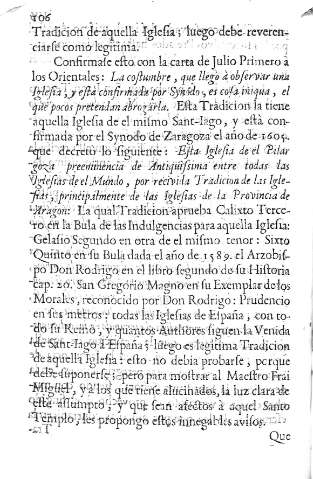 106
Tradicion de aquella Iglesia; luego debe reveren-
ciarse como legitima.
Confirmase esto con la carta de Julio Primero à
los Orientales: La costumbre, que llegò à observar una
Iglesia; y està confirmada por Synodo, es cosa iniqua, el
que pocos pretendan abrogarla. Esta Tradicion la tiene
aquella Iglesia de el mismo Sant-Iago, y està con-
firmada por el Synodo de Zaragoza el año de 1605.
que decretò lo siguiente: Esta Iglesia de el Pilar
goza preeminencia de Antiquissima entre todas las
Iglesias de el Mundo, por recivida Tradicion de las Igle-
sias, principalmente de las Iglesias de la Provincia de
Aragon: La qual Tradicion aprueba Calixto Terce-
ro en la Bula de las Indulgencias para aquella Iglesia:
Gelasio Segundo en otra de el mismo tenor: Sixto
Quinto en su Bula dada el año de 1589. el Arzobis-
po Don Rodrigo en el libro segundo de su Historia
cap. 20. San Gregorio Magno en su Exemplar de los
Morales, reconocido por Don Rodrigo: Prudencio
en sus metros: todas las Iglesias de España, con to-
do su Reino, y quantos Authores siguen la Venida
de Sant-Iago à España; luego es legitima Tradicion
de aquella Iglesia: esto no debia probarse, porque
debe suponerse; pero para mostrar al Maestro Frai
Miguel, y à los que tiene alucinados, la luz clara de
este assumpto, y que sean afectos à aquel Santo
Templo, les propongo estos innegables avisos.
Que